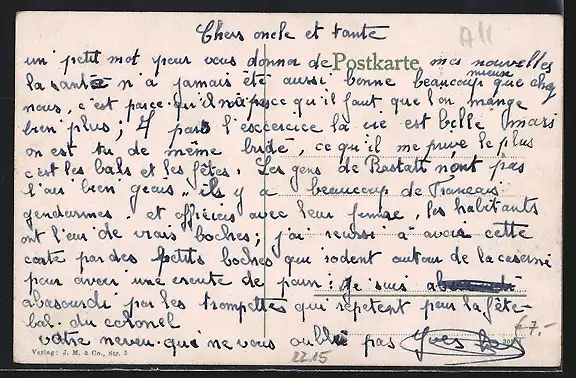 Chers oncle et tante
un petit mot pour vous donner de Postkarte mes nouvelles
la santé n'a jamais été aussi bonne beaucoup mieuse que chez
nous, c'est parce qu'il n'a parce qu'il faut que l'on mange
bien plus; 4 par l'excercice la vie est belle mais
on est tu de même bridé, ce qu'il me prive le plus
c'est les bals et les fêtes. Les gens de Rastatt n'ont pas
l'air bien geais, il y a beaucoup de Francais
gendarmes et officiers avec leur femme, les habitants
ont l'air de vrais boches; j'ai reussi à avoir cette
carte par des petits boches qui rodent autour de la caserne
pour avoir une croute de pain: je suis
abasourdi par les trompettes qui repetent pour la fête
bal du colonel
votre neveu qui ne vous oublie pas Yves
Verlag: J. M. & Co., Str. 5
2215
€7.-
A11